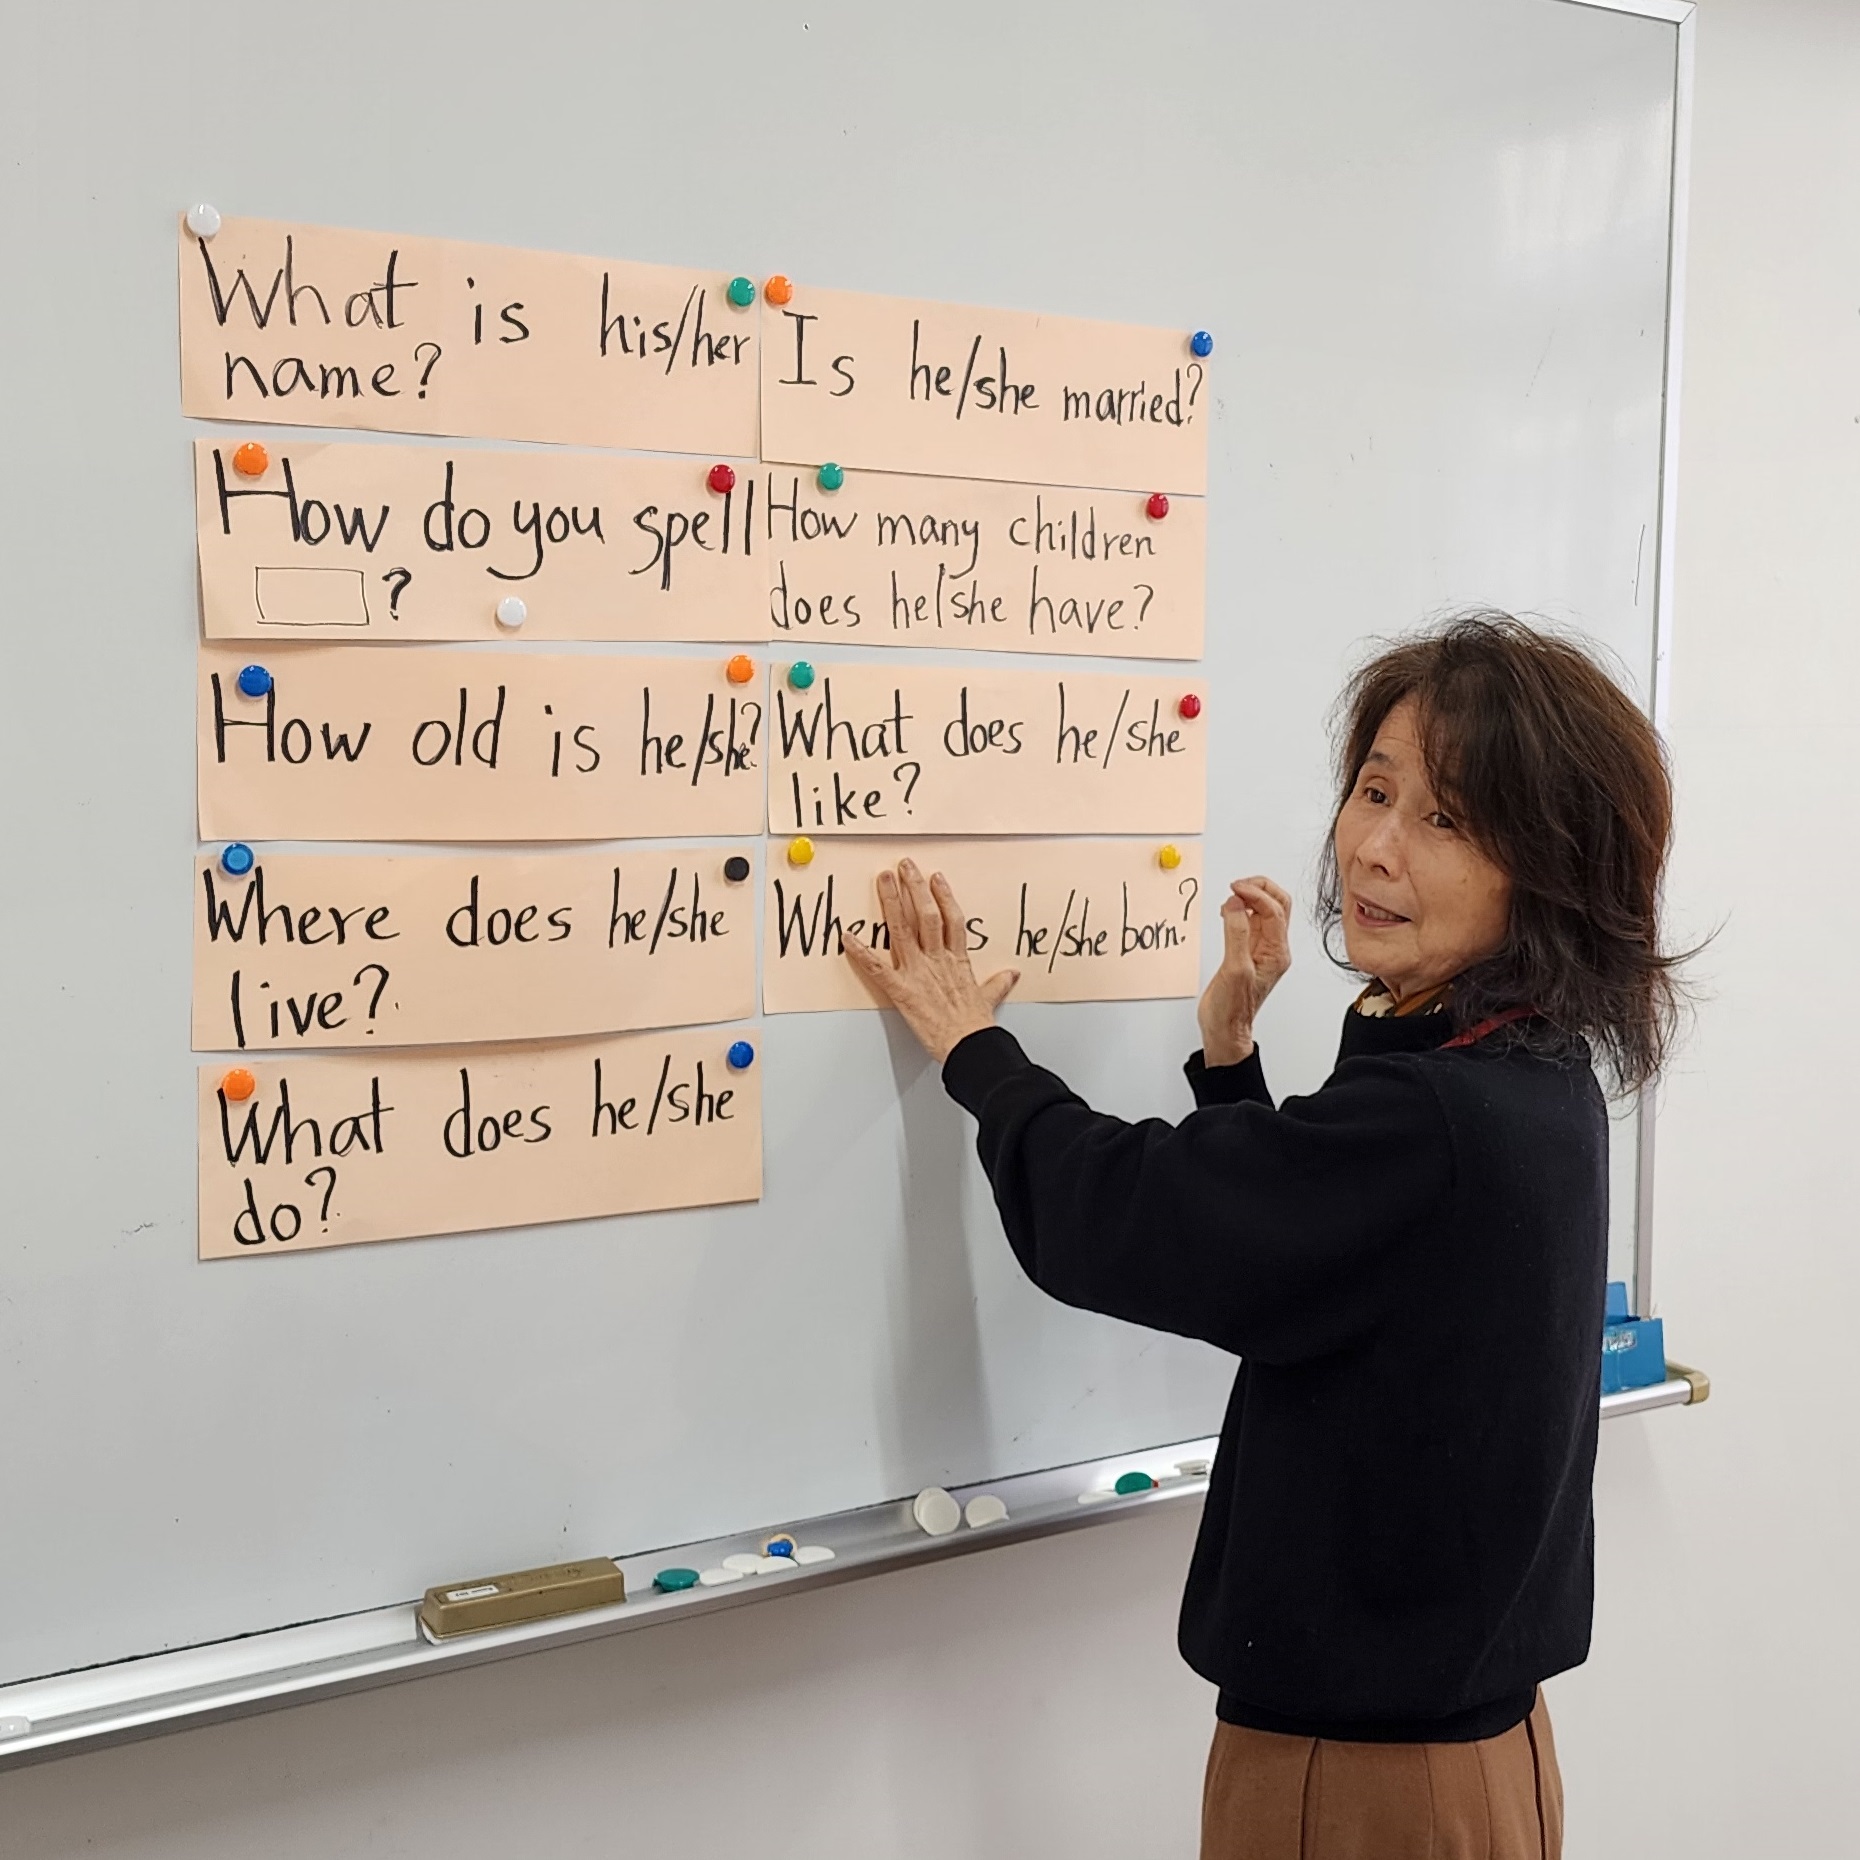 What is his/her
name?
How do you spell
?
How old is he/she?
Where does he/she
live?
What does he/she
do?
Is he/she married?
How many children
does he/she have?
What does he/she
like?
When he/she born?